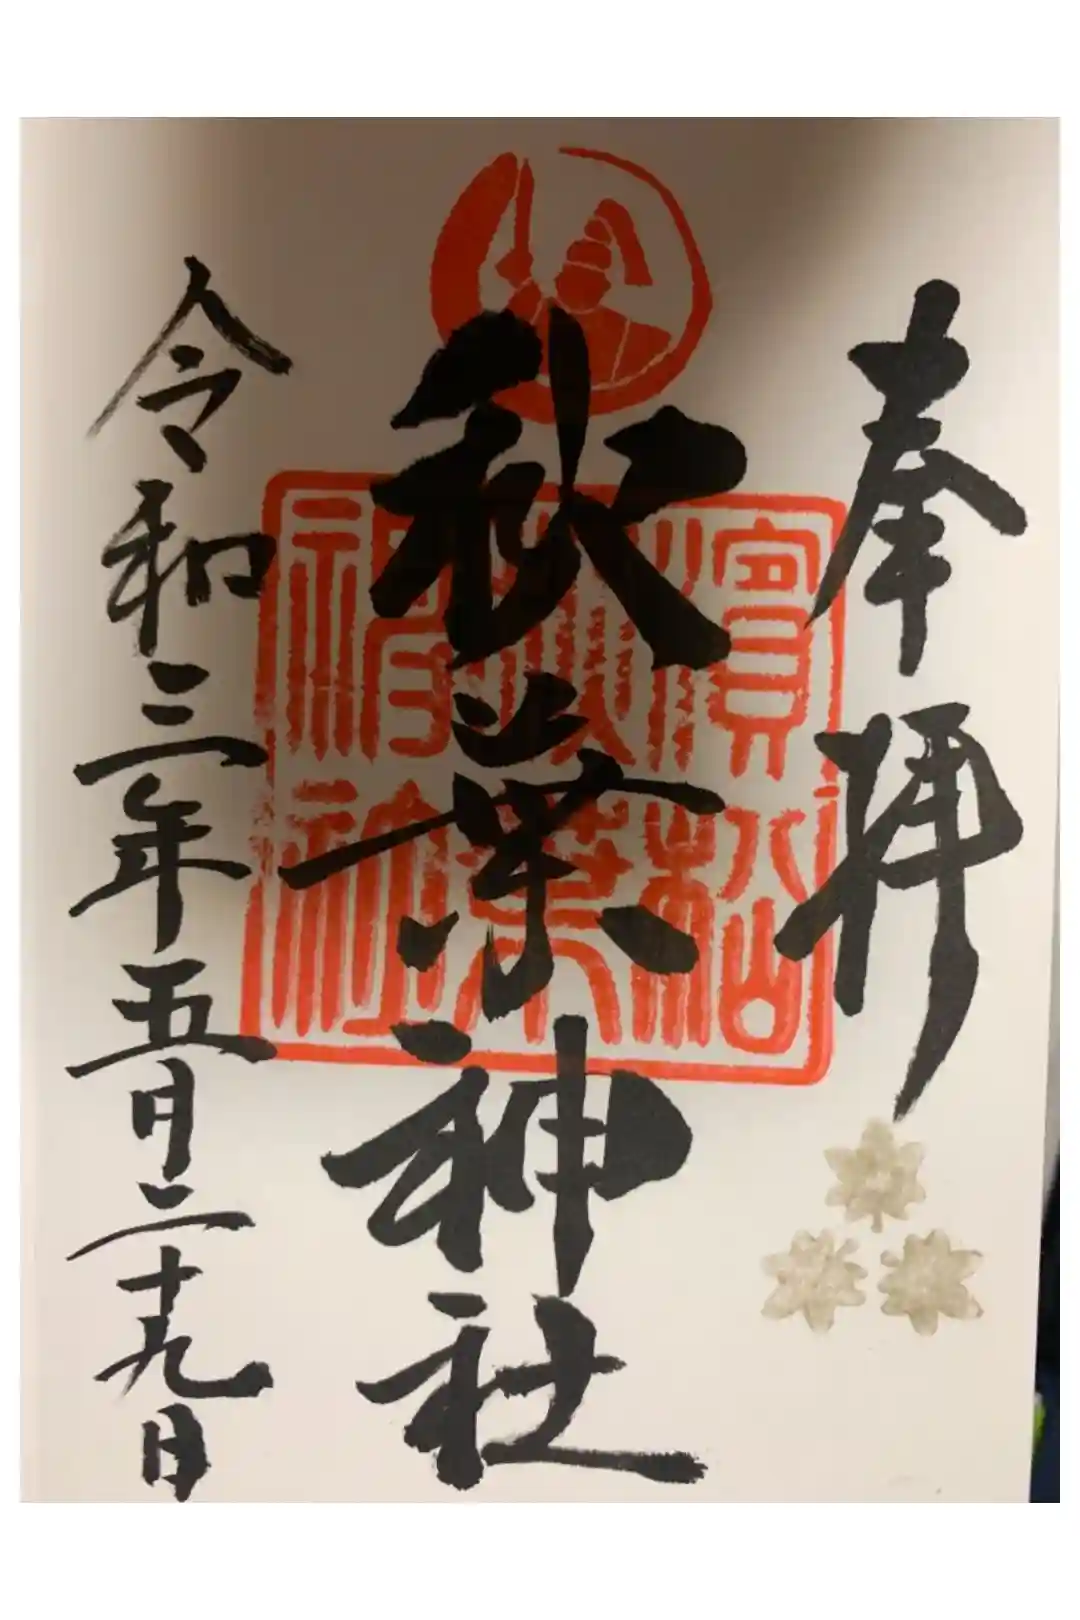 奉拝
濱松
秋葉
神社
秋葉神社
令和三年五月二十九日